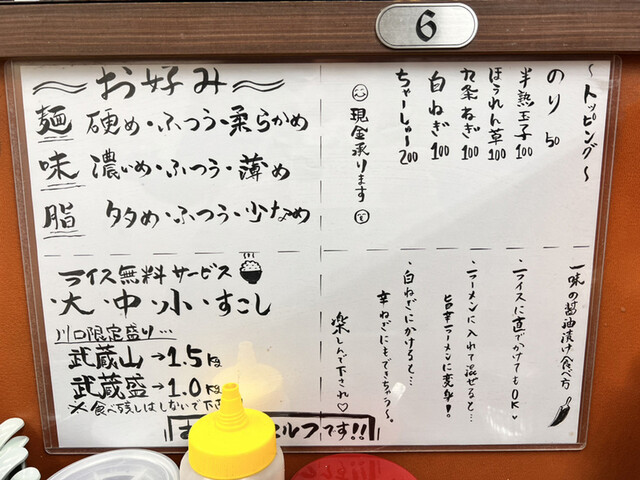 6
〜お好み〜
麺 硬め・ふつう・柔らかめ
味 濃いめ・ふつう・薄め
脂 多め・ふつう・少なめ
〜トッピング〜
のり 50
半熟玉子 100
ほうれん草 100
九条ねぎ 100
白ねぎ 100
ちゃーしゅー 200
現金承ります
ライス無料サービス
・大・中・小・すこし
川口限定盛り…
武蔵山→1.5kg
武蔵盛→1.0kg
※食べ残しはしないで下さ
ルフです!!
一味の醤油漬け食べ方
・ライスに直でかけてもOK♥
・ラーメンに入れて混ぜると…
旨辛ラーメンに変身!
・白ねぎにかけると…
辛ねぎにもできちゃう〜。
楽しんで下され♡